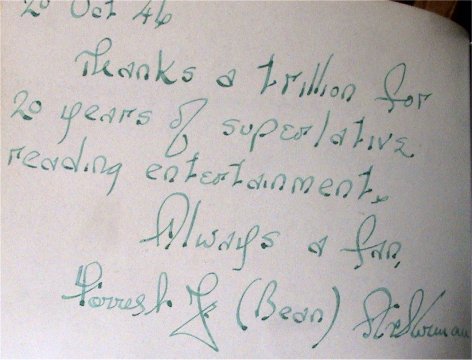 20 Oct 46
Thanks a trillion for
20 years of superlative
reading entertainment.
Always a fan,
Forrest J (Bean) Ackerman